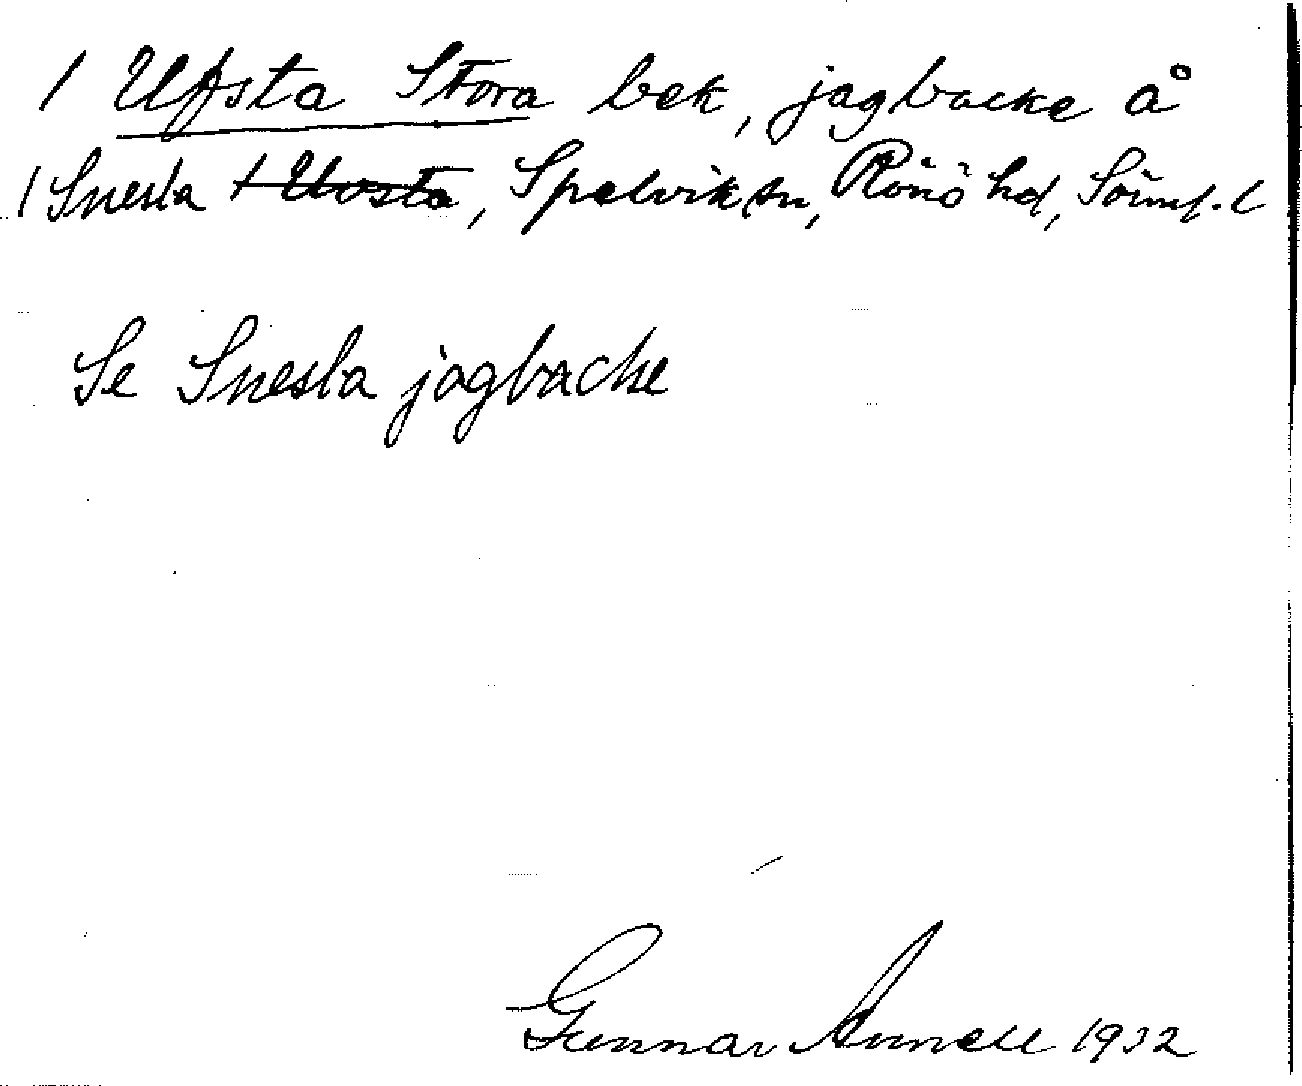 / Ufsta Stora bek, jagbacke å
/ Snesta / Uvsta, Spelvik sn, Rönö hd, Sörml. l
Se Snesta jagbacke
Gunnar Annell 1932